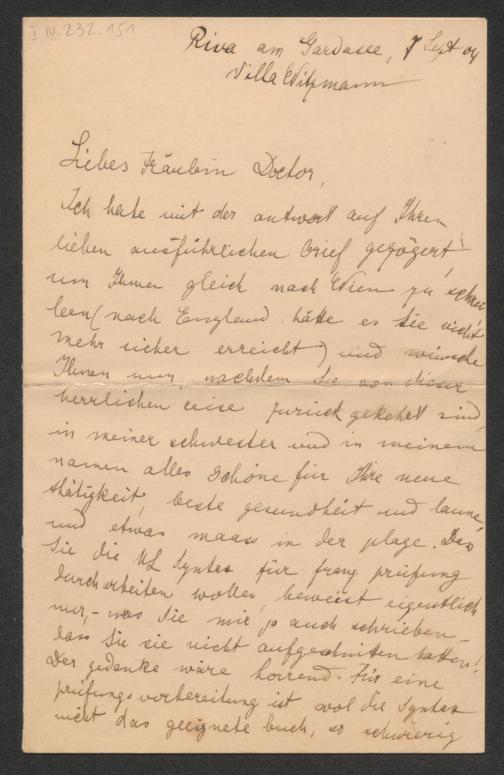 I.N.232.151
Riva am Gardasee, 7 Sept 04
Villa Witzmann
Liebes Fräulein Doctor,
Ich habe mit der antwort auf Ihren
lieben ausführlichen brief gezögert,
um Ihnen gleich nach Wien zu schrei
ben (nach England hätte es Sie nicht
mehr sicher erreicht) und wünsche
Ihnen nun, nachdem Sie von dieser
herrlichen reise zurückgekehrt sind,
in meiner schwester und in meinem
namen alles schöne für Ihre neue
thätigkeit, beste gesundheit und laune,
und etwas maass in der plage. Dass
Sie die ML Syntax für franz. prüfung
durcharbeiten wollen, beweist eigentlich
nur, – was Sie mir ja auch schrieben –
dass Sie sie nicht aufgeschnitten hatten!
Der gedanke wäre horrend. Für eine
prüfungsvorbereitung ist wol die Syntax
nicht das geeignete buch, so schwierig